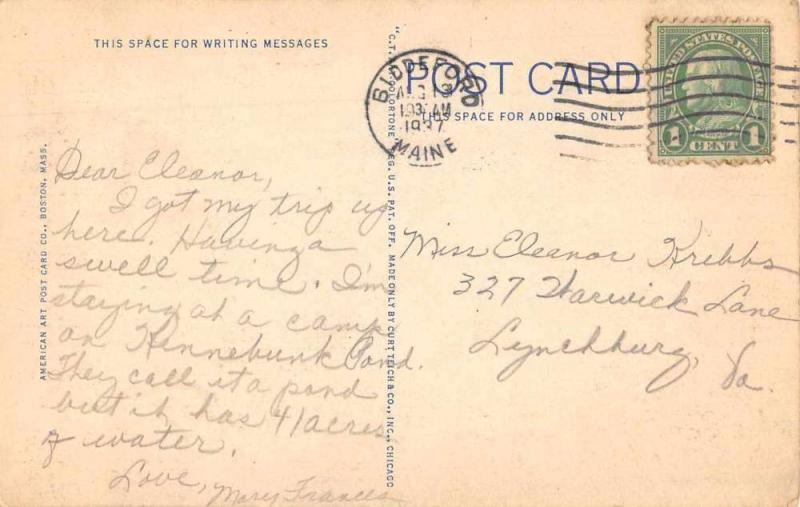 THIS SPACE FOR WRITING MESSAGES
POST CARD
THIS SPACE FOR ADDRESS ONLY
BIDDEFORD
AUG 13
1937
MAINE
UNITED STATES POSTAGE
1 CENT 1
AMERICAN ART POST CARD CO., BOSTON, MASS.
REG. U.S. PAT. OFF. MADE ONLY BY CURT TEICH & CO., INC., CHICAGO
Dear Eleanor,
I got my trip up
here. Having a
swell time. I'm
staying at a camp
on Kennebunk Pond.
They call it a pond
but it has 41 acres
of water.
Love, Mary Frances
Miss Eleanor Kribbs
327 Warwick Lane
Lynchburg,
Va.